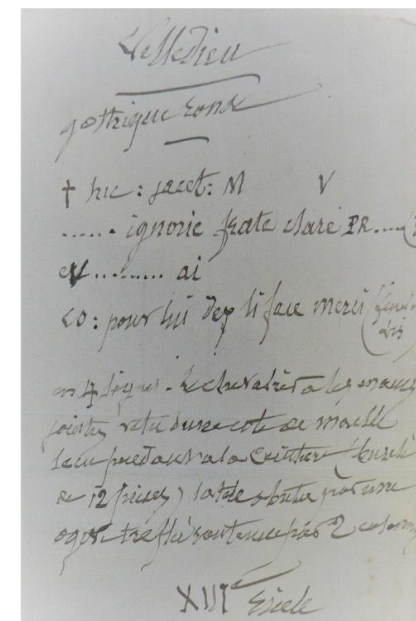 Villedieu
gothique ronde
† hic : jacet : M V
...... ignorie frate clare PR....
ai
CO : pour lui dex li face merci
en 4 lignes. le chevalier a les mains
jointes vetu d'une cote de maille
l'ecu pendant a la ceinture (burelé
de 12 pieces) la tete abritée par une
ogive trefflé soutenue par 2 colonn
XIIIe Siecle